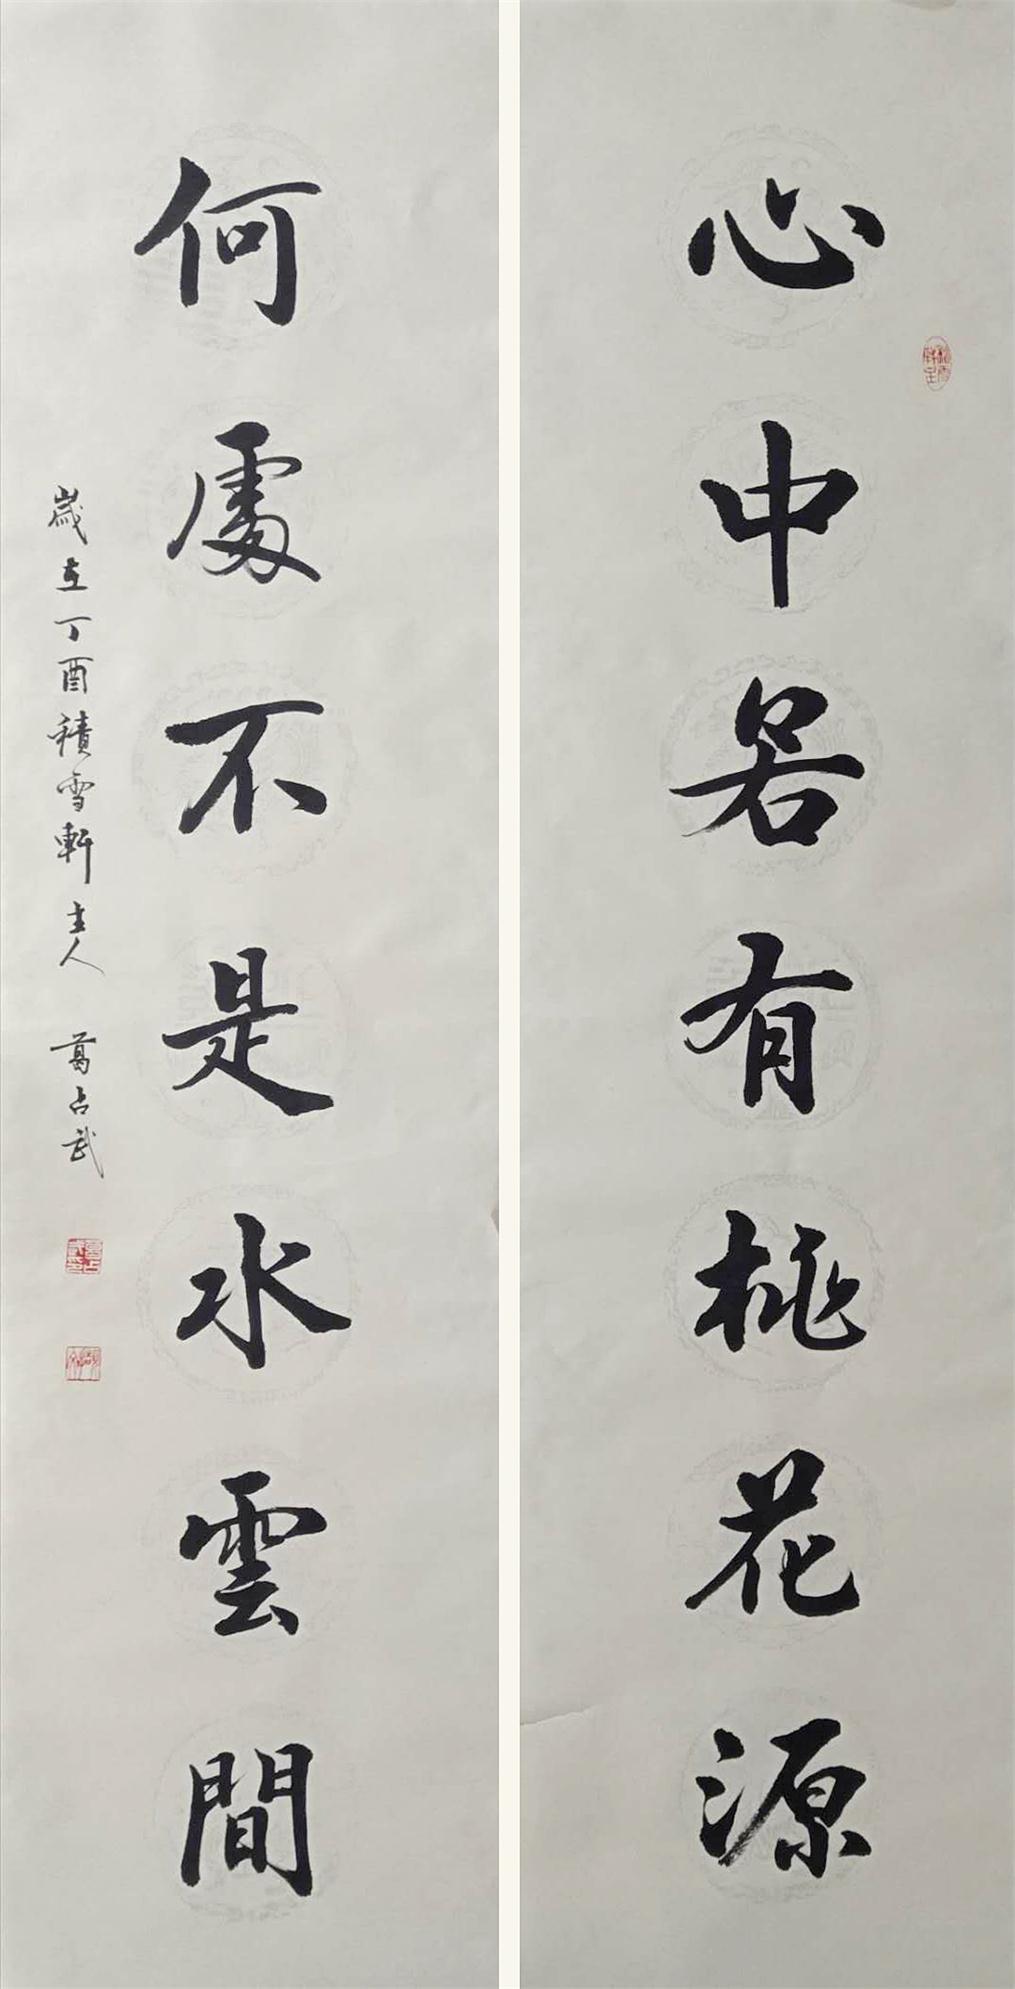 心中若有桃花源
何處不是水雲間
歲在丁酉積雪軒主人 葛占武